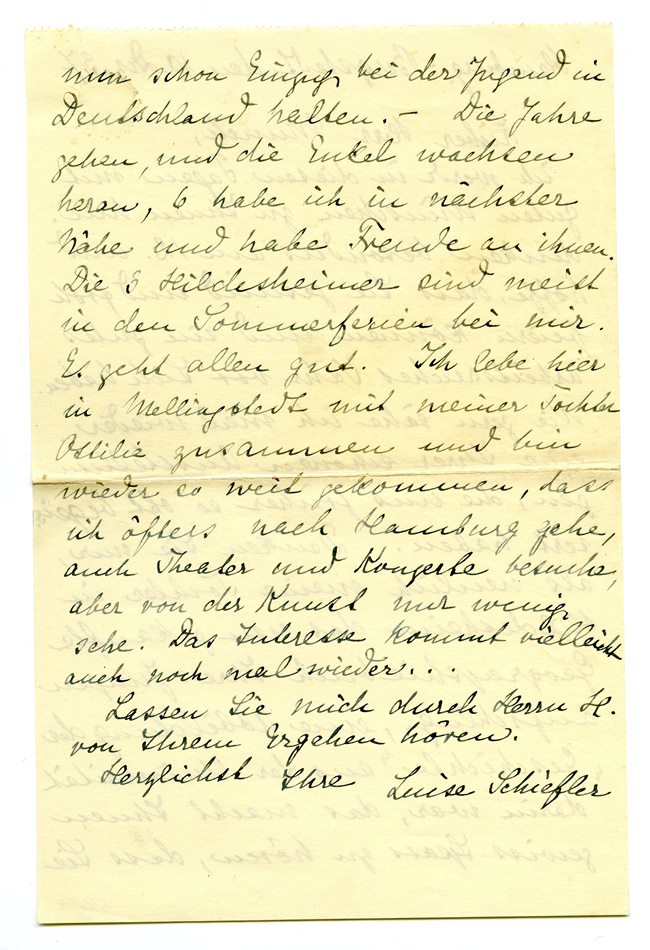 nun schon Einzug bei der Jugend in
Deutschland halten. – Die Jahre
gehen, und die Enkel wachsen
heran, 6 habe ich in nächster
Nähe und habe Freude an ihnen.
Die 3 Hildesheimer sind meist
in den Sommerferien bei mir.
Es geht allen gut. Ich lebe hier
in Mellingstedt mit meiner Tochter
Ottilie zusammen und bin
wieder so weit gekommen, dass
ich öfters nach Hamburg gehe,
auch Theater und Konzerte besuche,
aber von der Kunst nur wenig
sehe. Das Interesse kommt vielleicht
auch noch mal wieder...
Lassen Sie mich durch Herrn H.
von Ihrem Ergehen hören.
Herzlichst Ihre Luise Schiefler